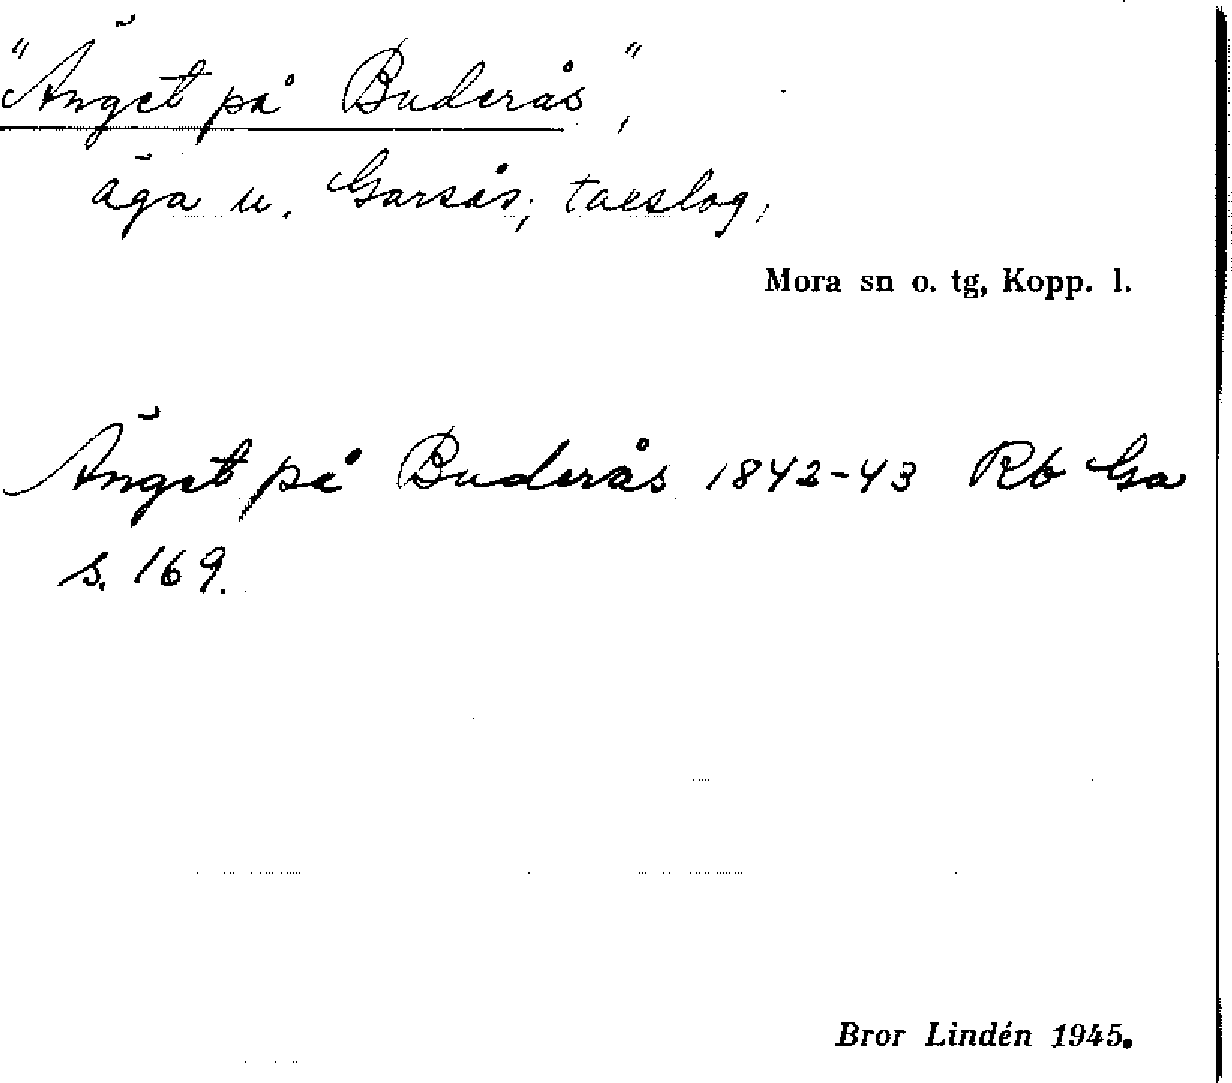 "Änget på Buderås",
äga u. Garsås; taeslog,
Mora sn o. tg, Kopp. l.
Änget på Buderås 1842-43 Rb Ga
s. 169.
Bror Lindén 1945.